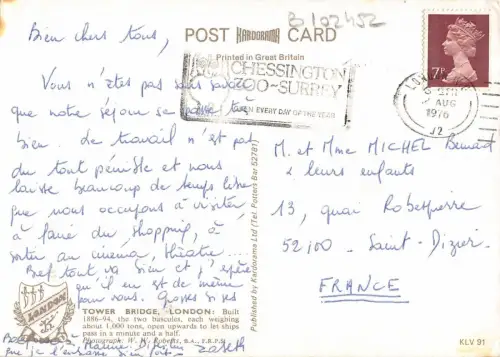 B 102452
Bien chers tous,
POST KARDORAMA CARD
Printed in Great Britain
CHESSINGTON
ZOO-SURREY
OPEN EVERY DAY OF THE YEAR
7P
LON
AUG
1976
Vous n'êtes pas sans savoir
que notre séjour se passe très
bien. Le travail n'est pas
du tout pénible et nous
laisse beaucoup de temps libre
que nous occupons à visiter,
à faire du shopping, à
sortir au cinéma, théatre...
Bref tout va bien et j'espère
qu'il en est de même
pour vous. Grosses bises
M. et Mme MICHEL Bernard
& leurs enfants
13, quai Robespierre
52100 - Saint-Dizier
FRANCE
Published by Kardorama Ltd (Tel. Potters Bar 52781)
LONDON
TOWER BRIDGE, LONDON: Built
1886-94, the two bascules, each weighing
about 1,000 tons, open upwards to let ships
pass in a minute and a half.
Photograph: W. W. Roberts, B.A., F.R.P.S.
que je l'embrasse bien fort
KLV 91